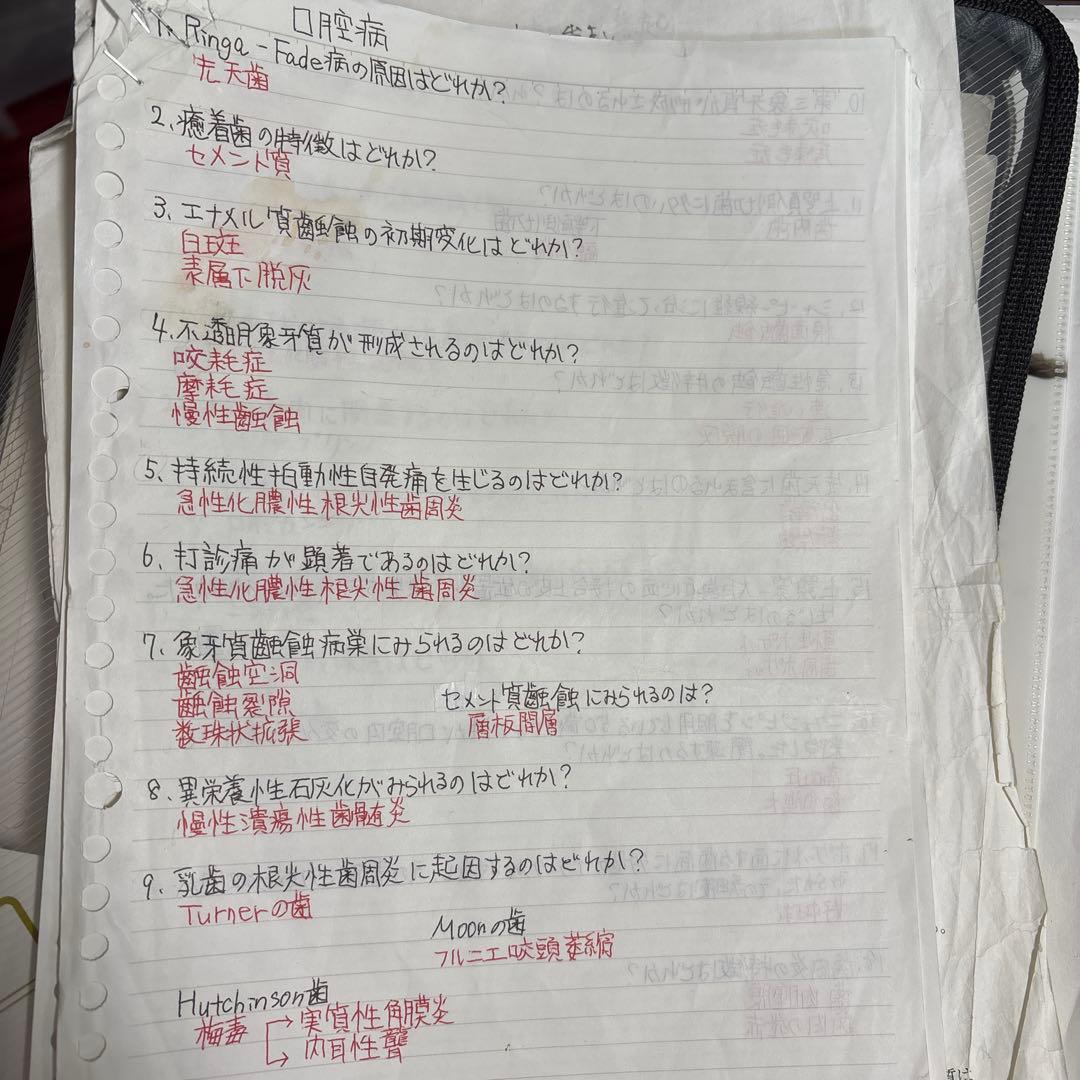 口腔病
1. Ringa-Fade病の原因はどれか?
先天歯
2. 癒着歯の特徴はどれか?
セメント質
3. エナメル質齲蝕の初期変化はどれか?
白斑
表層下脱灰
4. 不透明象牙質が形成されるのはどれか?
咬耗症
摩耗症
慢性齲蝕
5. 持続性拍動性自発痛を生じるのはどれか?
急性化膿性根尖性歯周炎
6. 打診痛が顕著であるのはどれか?
急性化膿性根尖性歯周炎
7. 象牙質齲蝕病巣にみられるのはどれか?
齲蝕空洞
齲蝕裂隙
数珠状拡張
セメント質齲蝕にみられるのは?
層板間層
8. 異栄養性石灰化がみられるのはどれか?
慢性潰瘍性歯髄炎
9. 乳歯の根尖性歯周炎に起因するのはどれか?
Turnerの歯
Moonの歯
フルニエ咬頭萎縮
Hutchinson歯
梅毒 → 実質性角膜炎
→ 内耳性聾